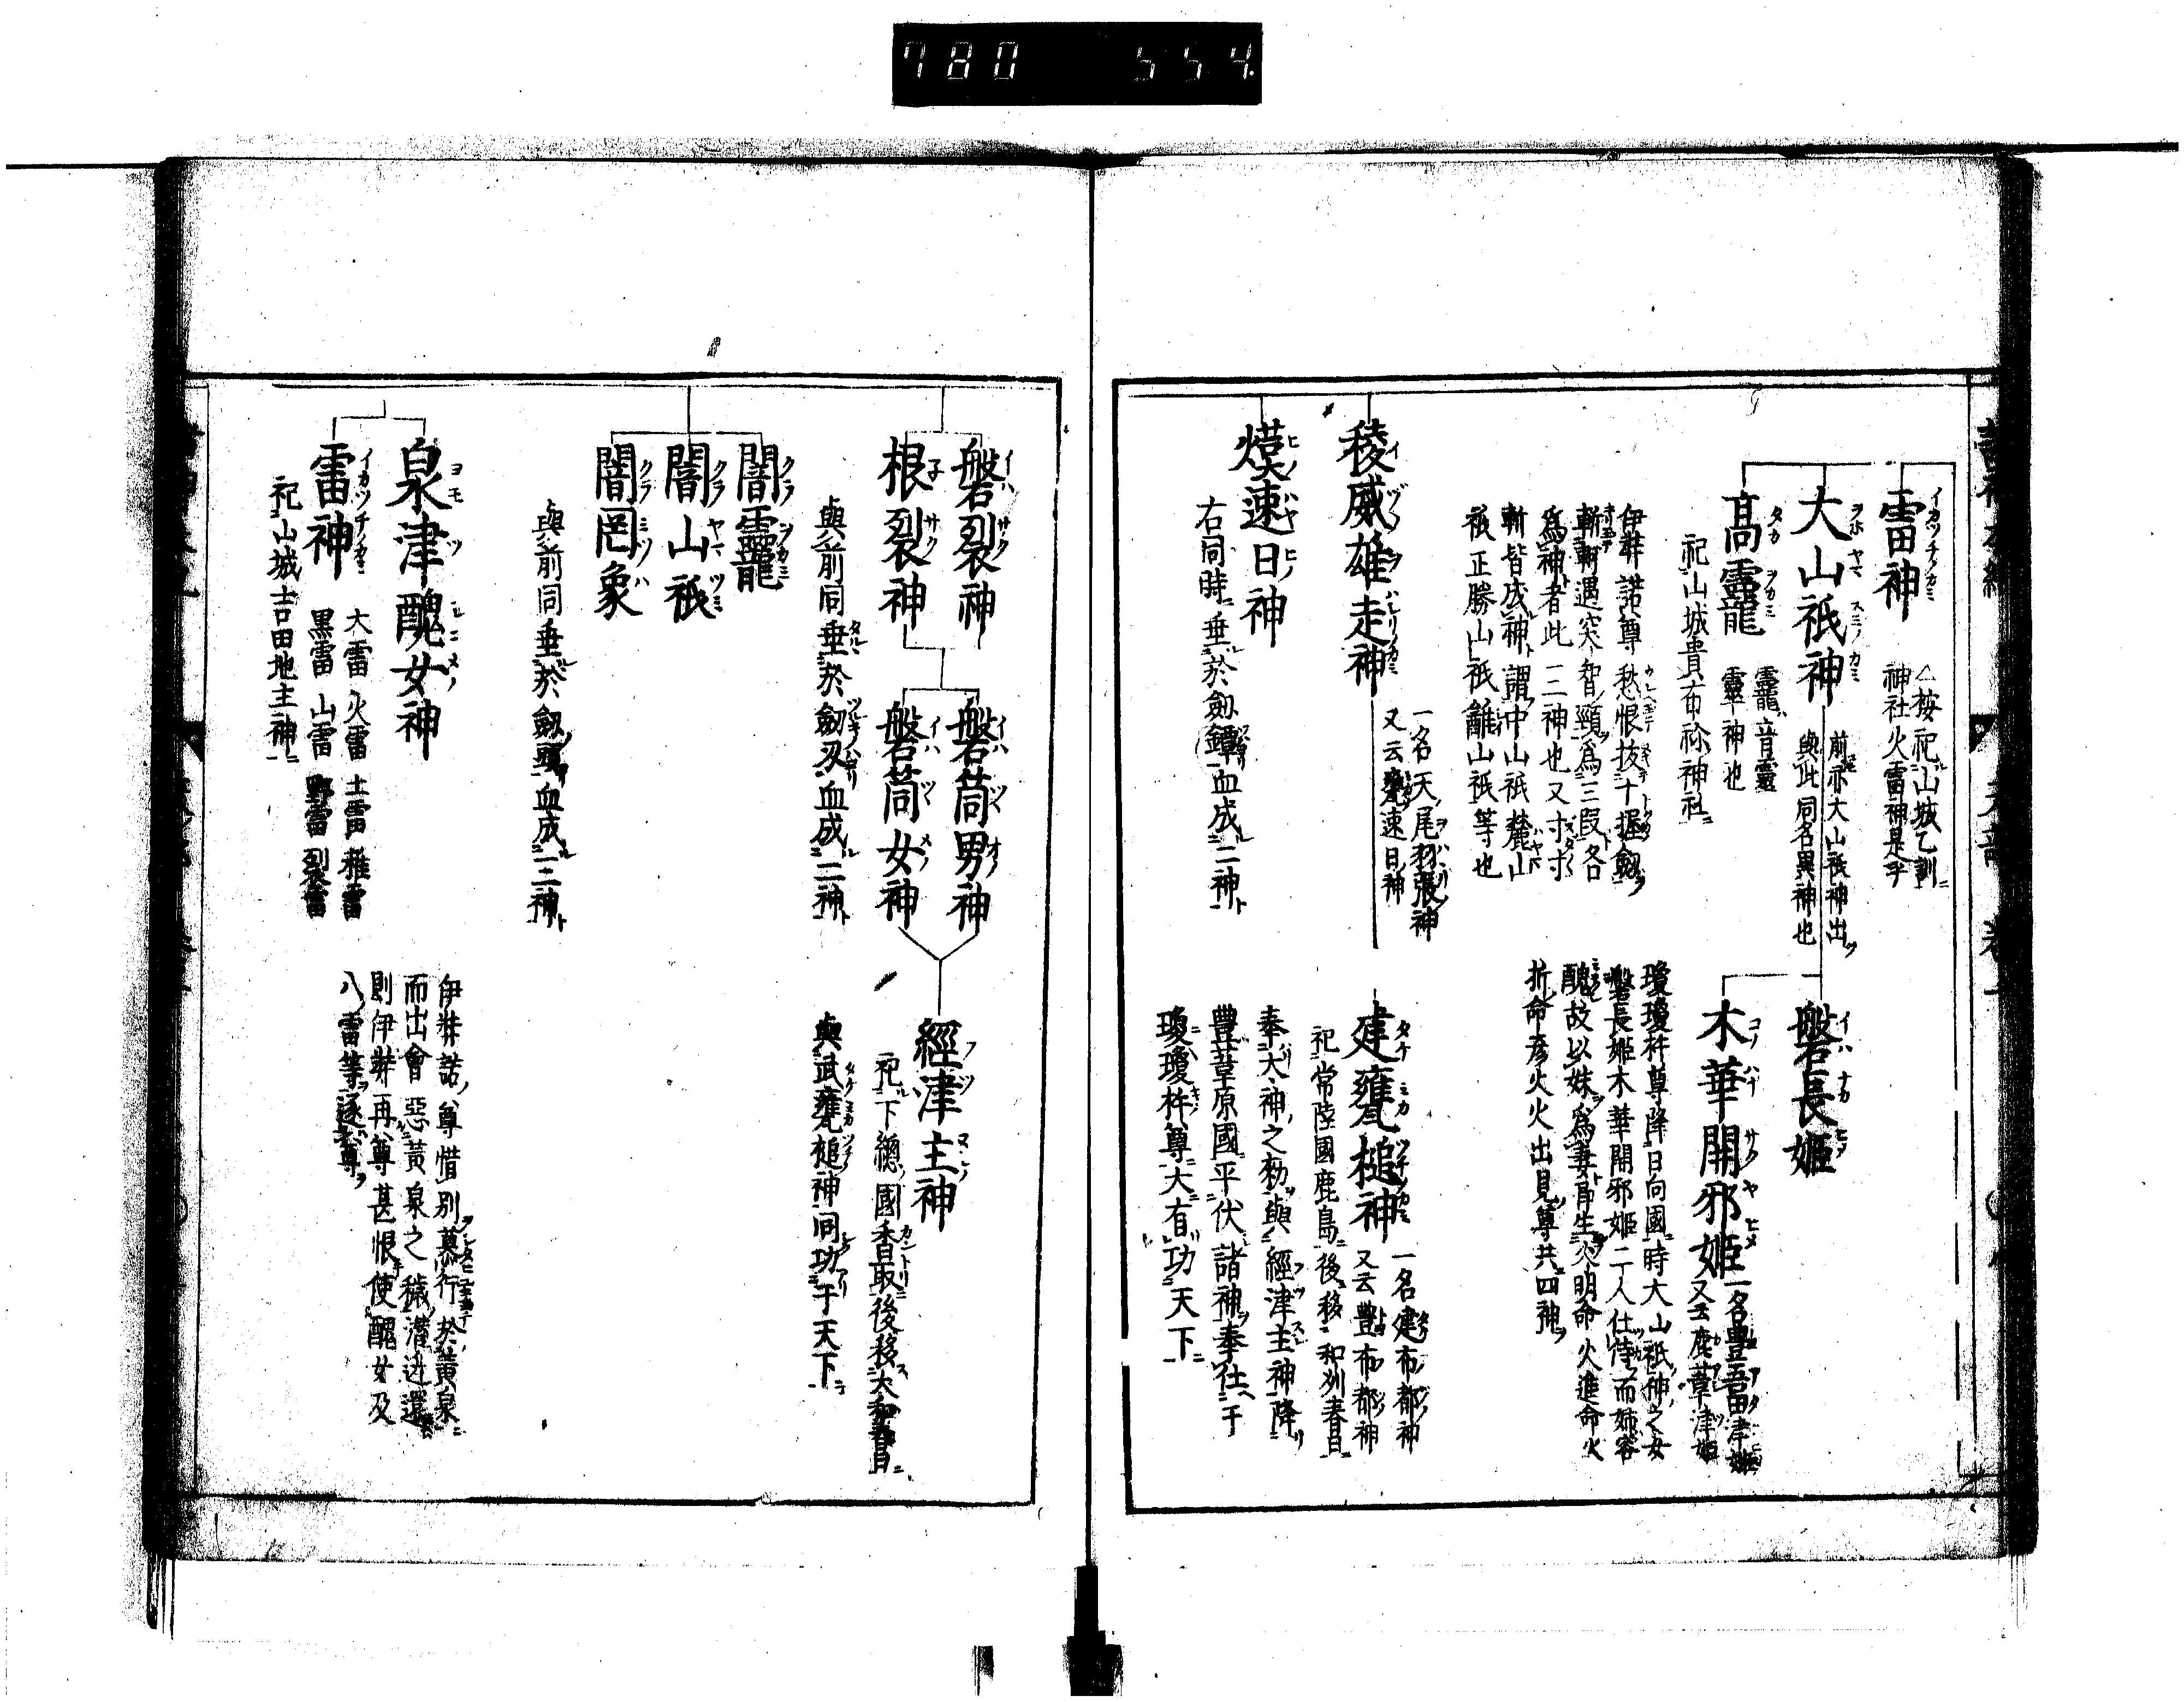 780 554
雷神
△按祀山城乙訓
神社火雷神是乎
大山祇神
前亦大山祇神出
與此同名異神也
磐長姬
木華開邪姬
一名豊吾田津姬
又云鹿葦津姬
瓊瓊杵尊降日向國時大山祇神之女
磐長姬木華開邪姬二人仕侍而姉容
醜故以妹爲妻
生火明命火進命火
折命彥火火出見尊共四神
高龗
龗音靈
靈神也
祀山城貴布祢神社
伊弉諾尊愁恨抜十握劔
斬軻遇突智頸爲三段各
爲神者此三神也又寸寸
斬皆成神謂中山祇麓山
祇正勝山祇䨄山祇等也
稜威雄走神
一名天尾羽張神
又云甕速日神
建甕槌神
一名建布都神
又云豊布都神
祀常陸國鹿島後移和州春日
奉大神之勅與經津主神降
豊葦原國平伏諸神奉仕于
瓊瓊杵尊大有功天下
熯速日神
右同時垂於劔鐔血成二神
磐裂神
根裂神
磐筒男神
磐筒女神
經津主神
祀下總國香取後移大和春日
與武甕槌神同功于天下
與前同垂於劔刄血成二神
闇龗
闇山祇
闇罔象
與前同垂於劔頭血成三神
泉津醜女神
雷神
大雷 火雷 土雷 稚雷
黒雷 山雷 野雷 裂雷
祀山城吉田地主神
伊弉諾尊惜別慕行於黃泉
而出會惡黃泉之穢潛迯還
則伊弉再尊甚恨使醜女及
八雷等逐尊